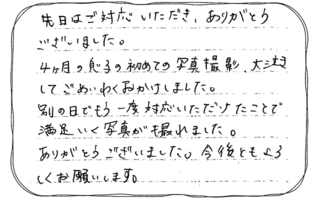 先日はご対応いただき、ありがとう
ございました。
4ヶ月の息子の初めての写真撮影、大泣き
してごめいわくおかけしました。
別の日でもう一度対応いただけたことで
満足いく写真が撮れました。
ありがとうございました。今後ともよろ
しくお願いします。